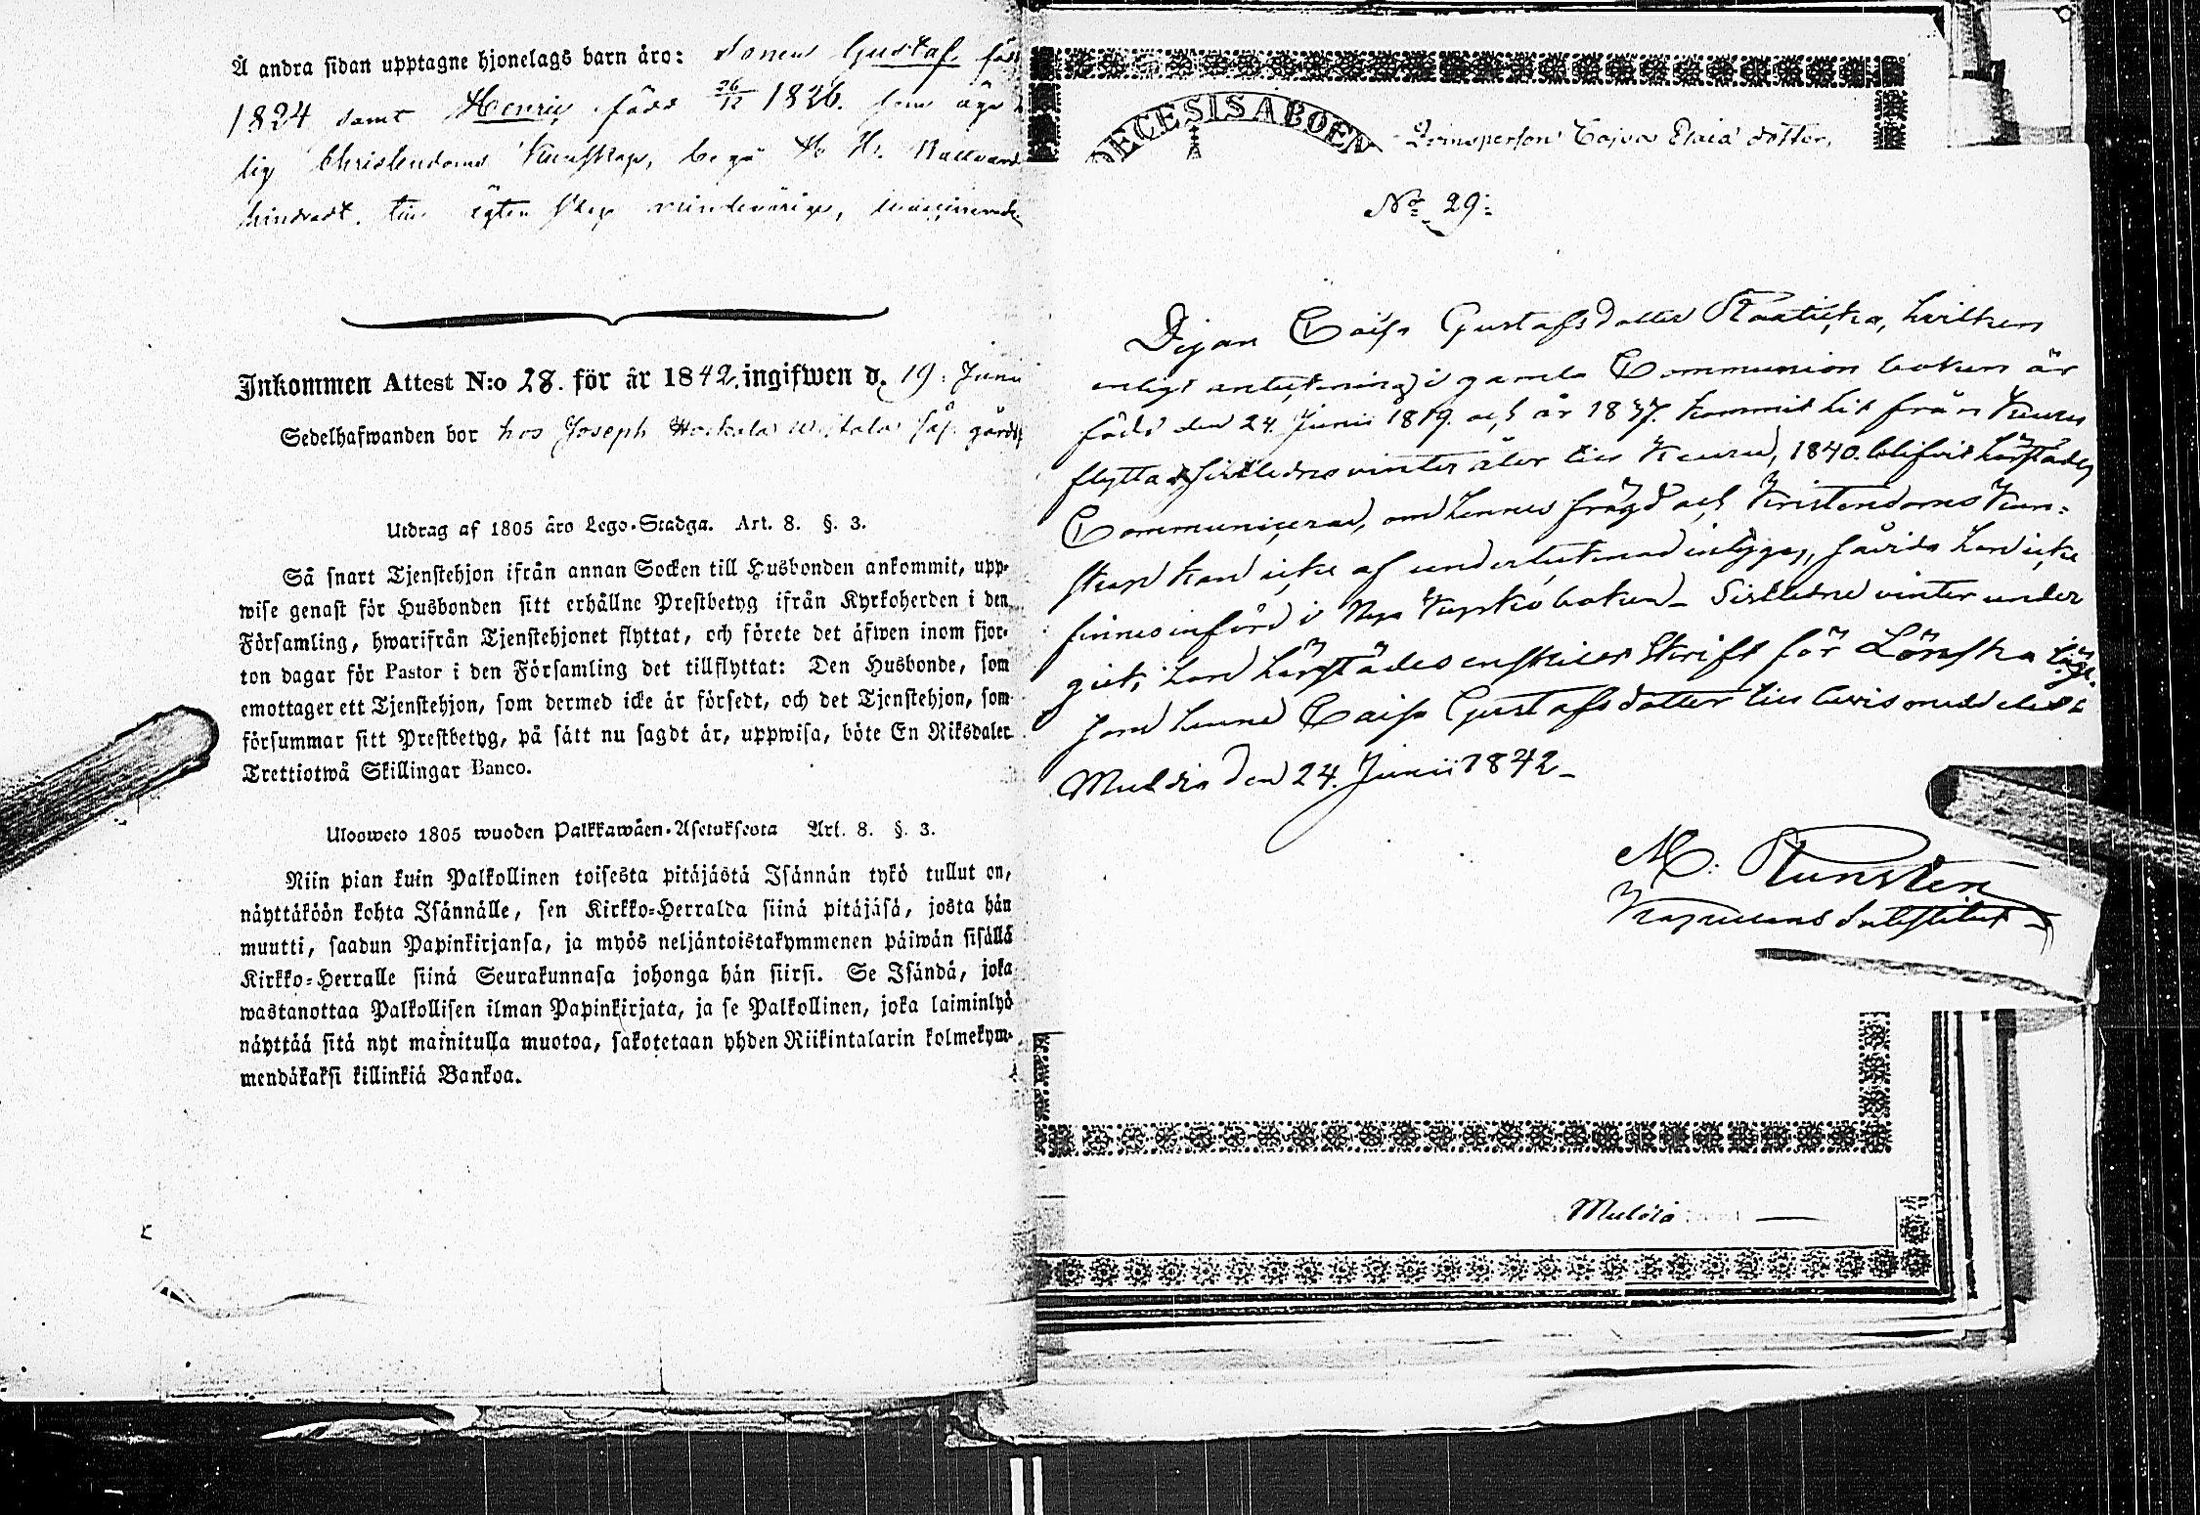 Å andra sidan upptagne hjonelags barn äro: sonen Gustaf född
1824 samt Henric född 26/12 1826. som äga
lig Christendoms kunskap, begå H. H. Nattvard
hindradt. till ägtenskap minderårige,
Inkommen Attest N:o 28. för år 1842. ingifwen d. 19. Junii
Sedelhafwanden bor hos Joseph
Utdrag af 1805 åro Lego-Stadga. Art. 8. §. 3.
Så snart Tjenstehjon ifrån annan Socken till Husbonden ankommit, upp-
wise genast för Husbonden sitt erhållne Prestbetyg ifrån Kyrkoherden i den
Församling, hwarifrån Tjenstehjonet flyttat, och förete det äfwen inom fjor-
ton dagar för Pastor i den Församling det tillflyttat: Den Husbonde, som
emottager ett Tjenstehjon, som dermed icke är försedt, och det Tjenstehjon, som
försummar sitt Prestbetyg, på sätt nu sagdt är, uppwisa, böte En Riksdaler
Trettiotwå Skillingar Banco.
Ulosweto 1805 wuoden Palkkawäen-Asetuksesta Art. 8. §. 3.
Niin pian kuin Palkollinen toisesta pitäjästä Isännän tykö tullut on,
näyttäköön kohta Isännälle, sen Kirkko-Herralda siinä pitäjäsä, josta hän
muutti, saadun Papinkirjansa, ja myös neljäntoistakymmenen päiwän sisällä
Kirkko-Herralle siinä Seurakunnasa johonga hän siirsi. Se Isändä, joka
wastanottaa Palkollisen ilman Papinkirjata, ja se Palkollinen, joka laiminlyö
näyttää sitä nyt mainitulla muotoa, sakotetaan yhden Riikintalarin kolmekym-
mendäkaksi killinkiä Bankoa.
DECESIS ABOEN
Qvinsperson Cajsa Elia dotter,
No 29:
Pigan Caisa Gustafsdotter Raatikka, hvilken
enligt antekning i gamla Communion boken är
född den 24. Junii 1819. och år 1837. kommit hit från Keuru
flyttad sistledne vinter åter till Keuru, 1840. blifvit härstädes
Communicerad, om hennes frägd och Kristendoms kun-
skap kan icke af undertecknad intygas, såvida hon icke
finnes införd i Nya Kyrkoboken - Sistledne vinter under
gick hon härstädes enskilt Skrift för Lönska läge-
som henne Caisa Gustafsdotter till bevis meddelas
Muldia den 24. Junii 1842 -
M: Tunsten
Kapellans Substitut
Muldia